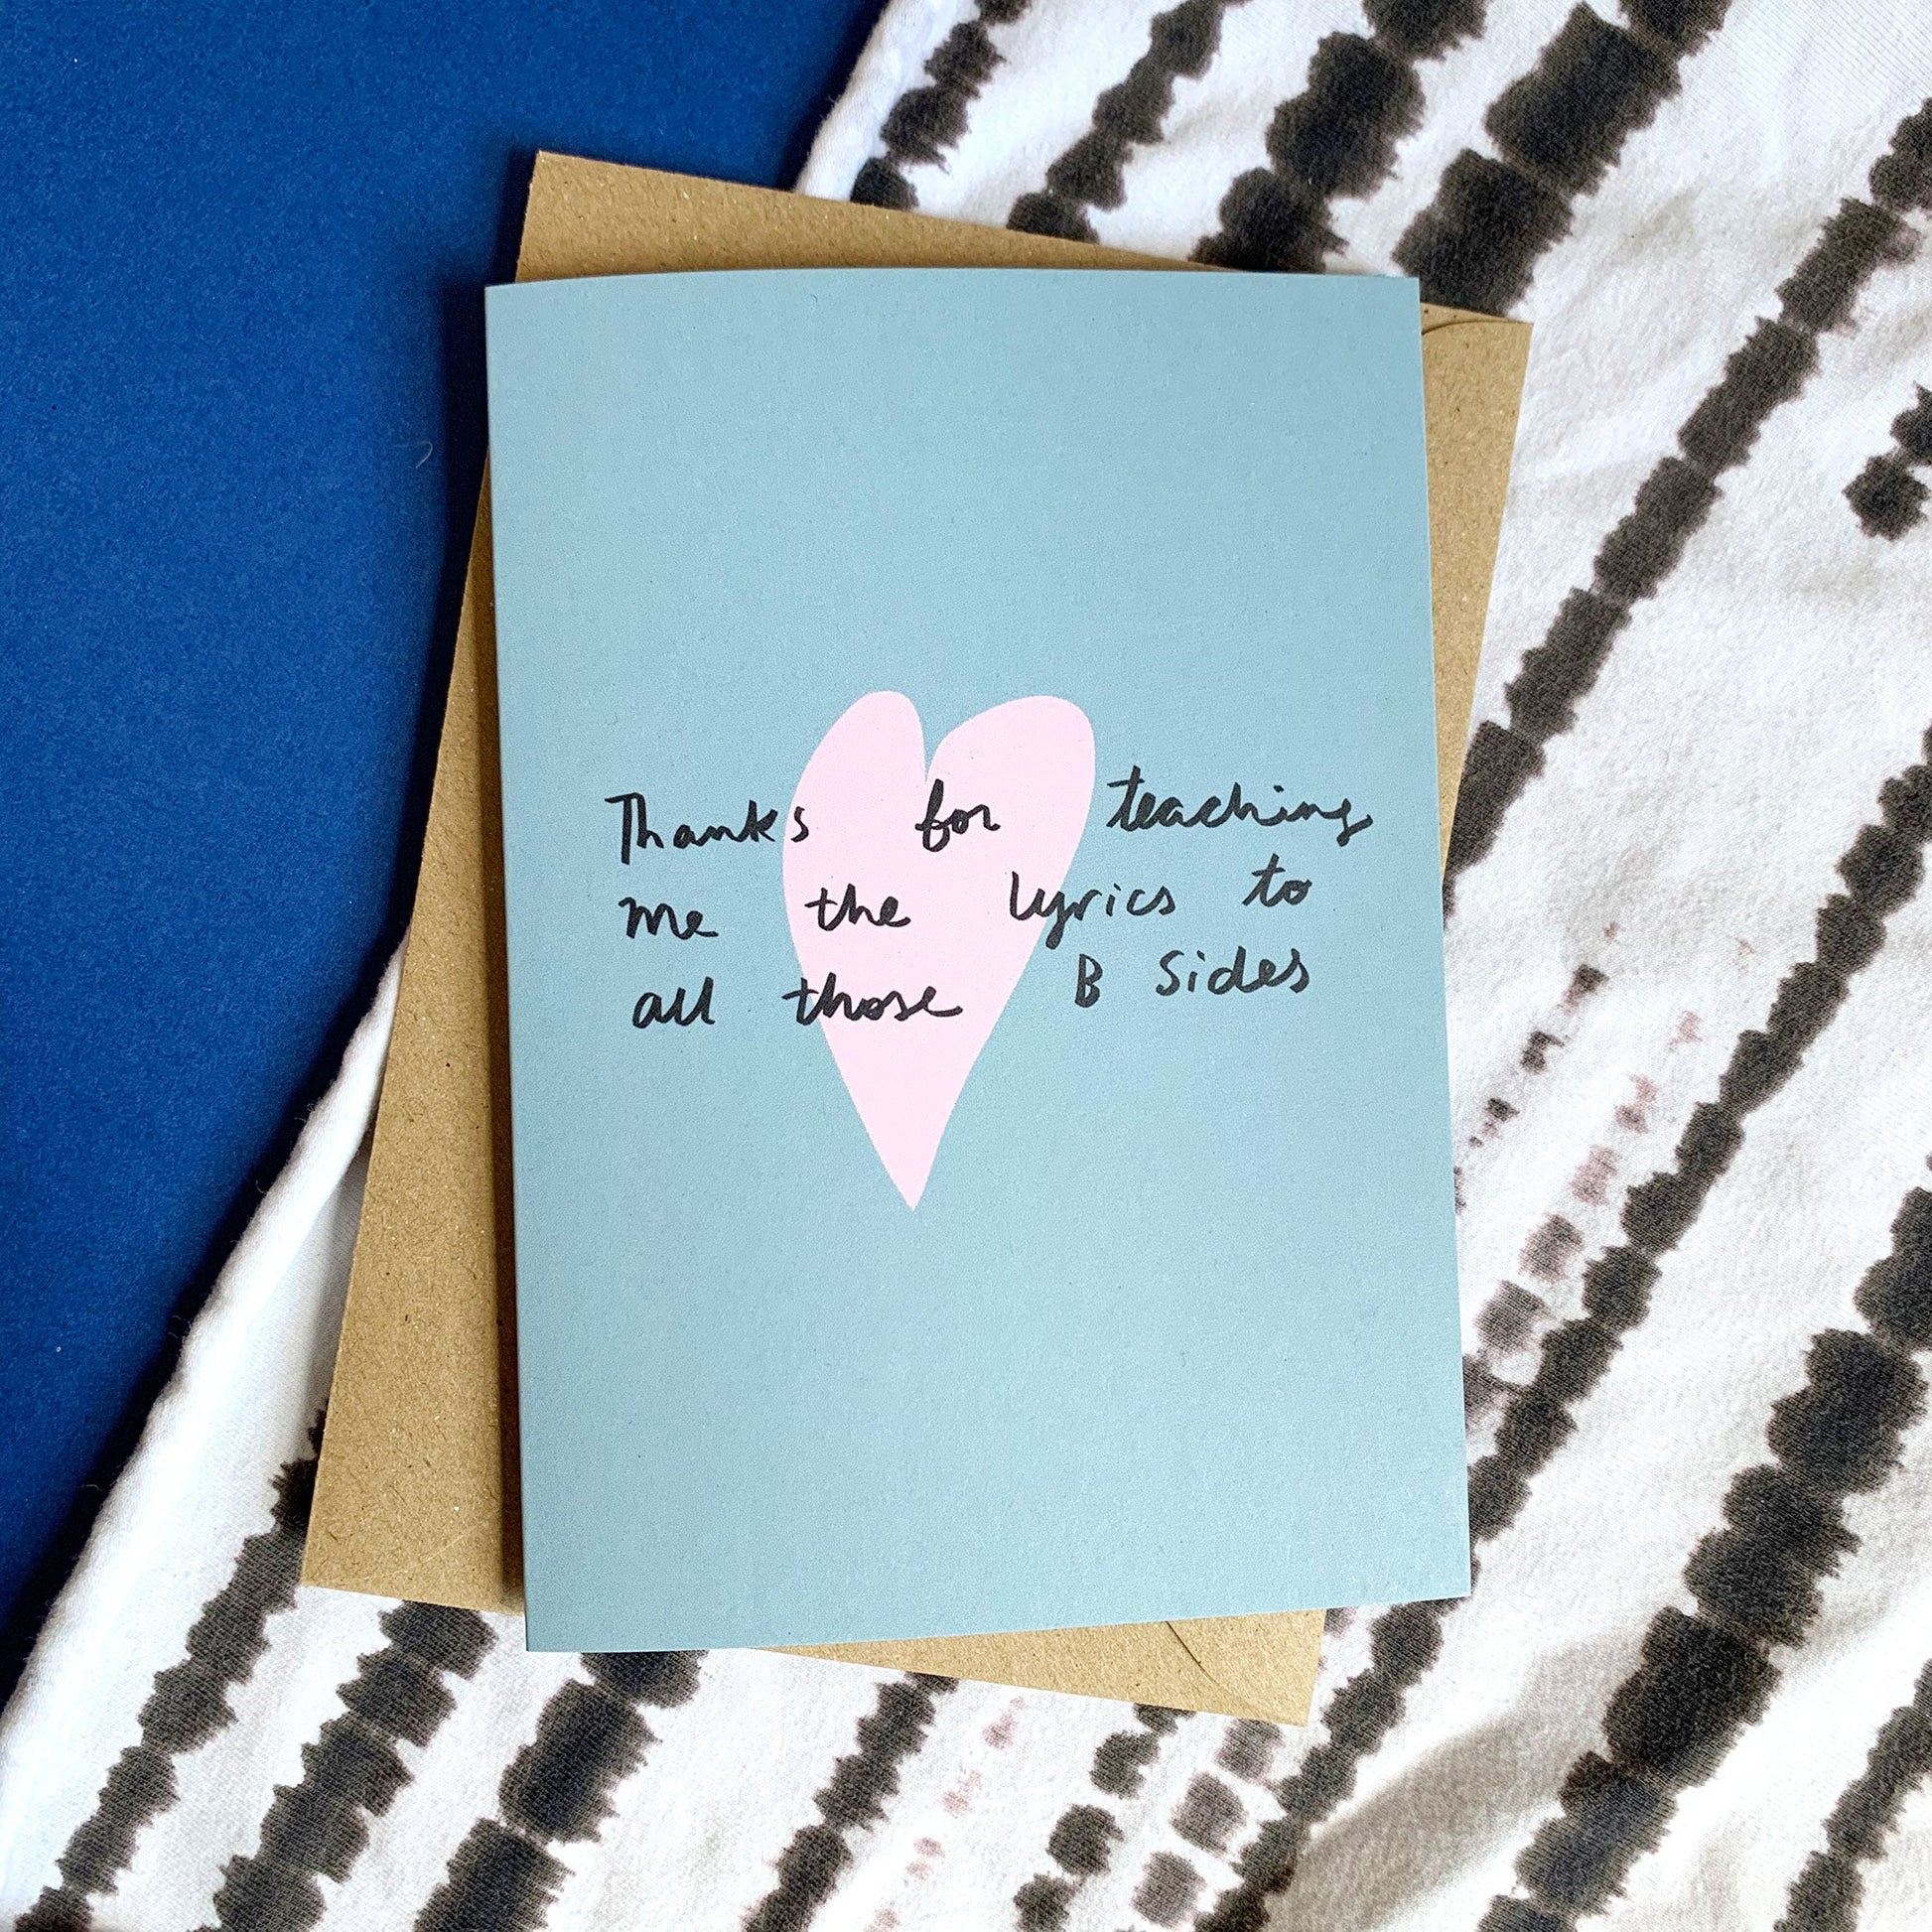 Thanks for teaching
me the lyrics to
all those B Sides